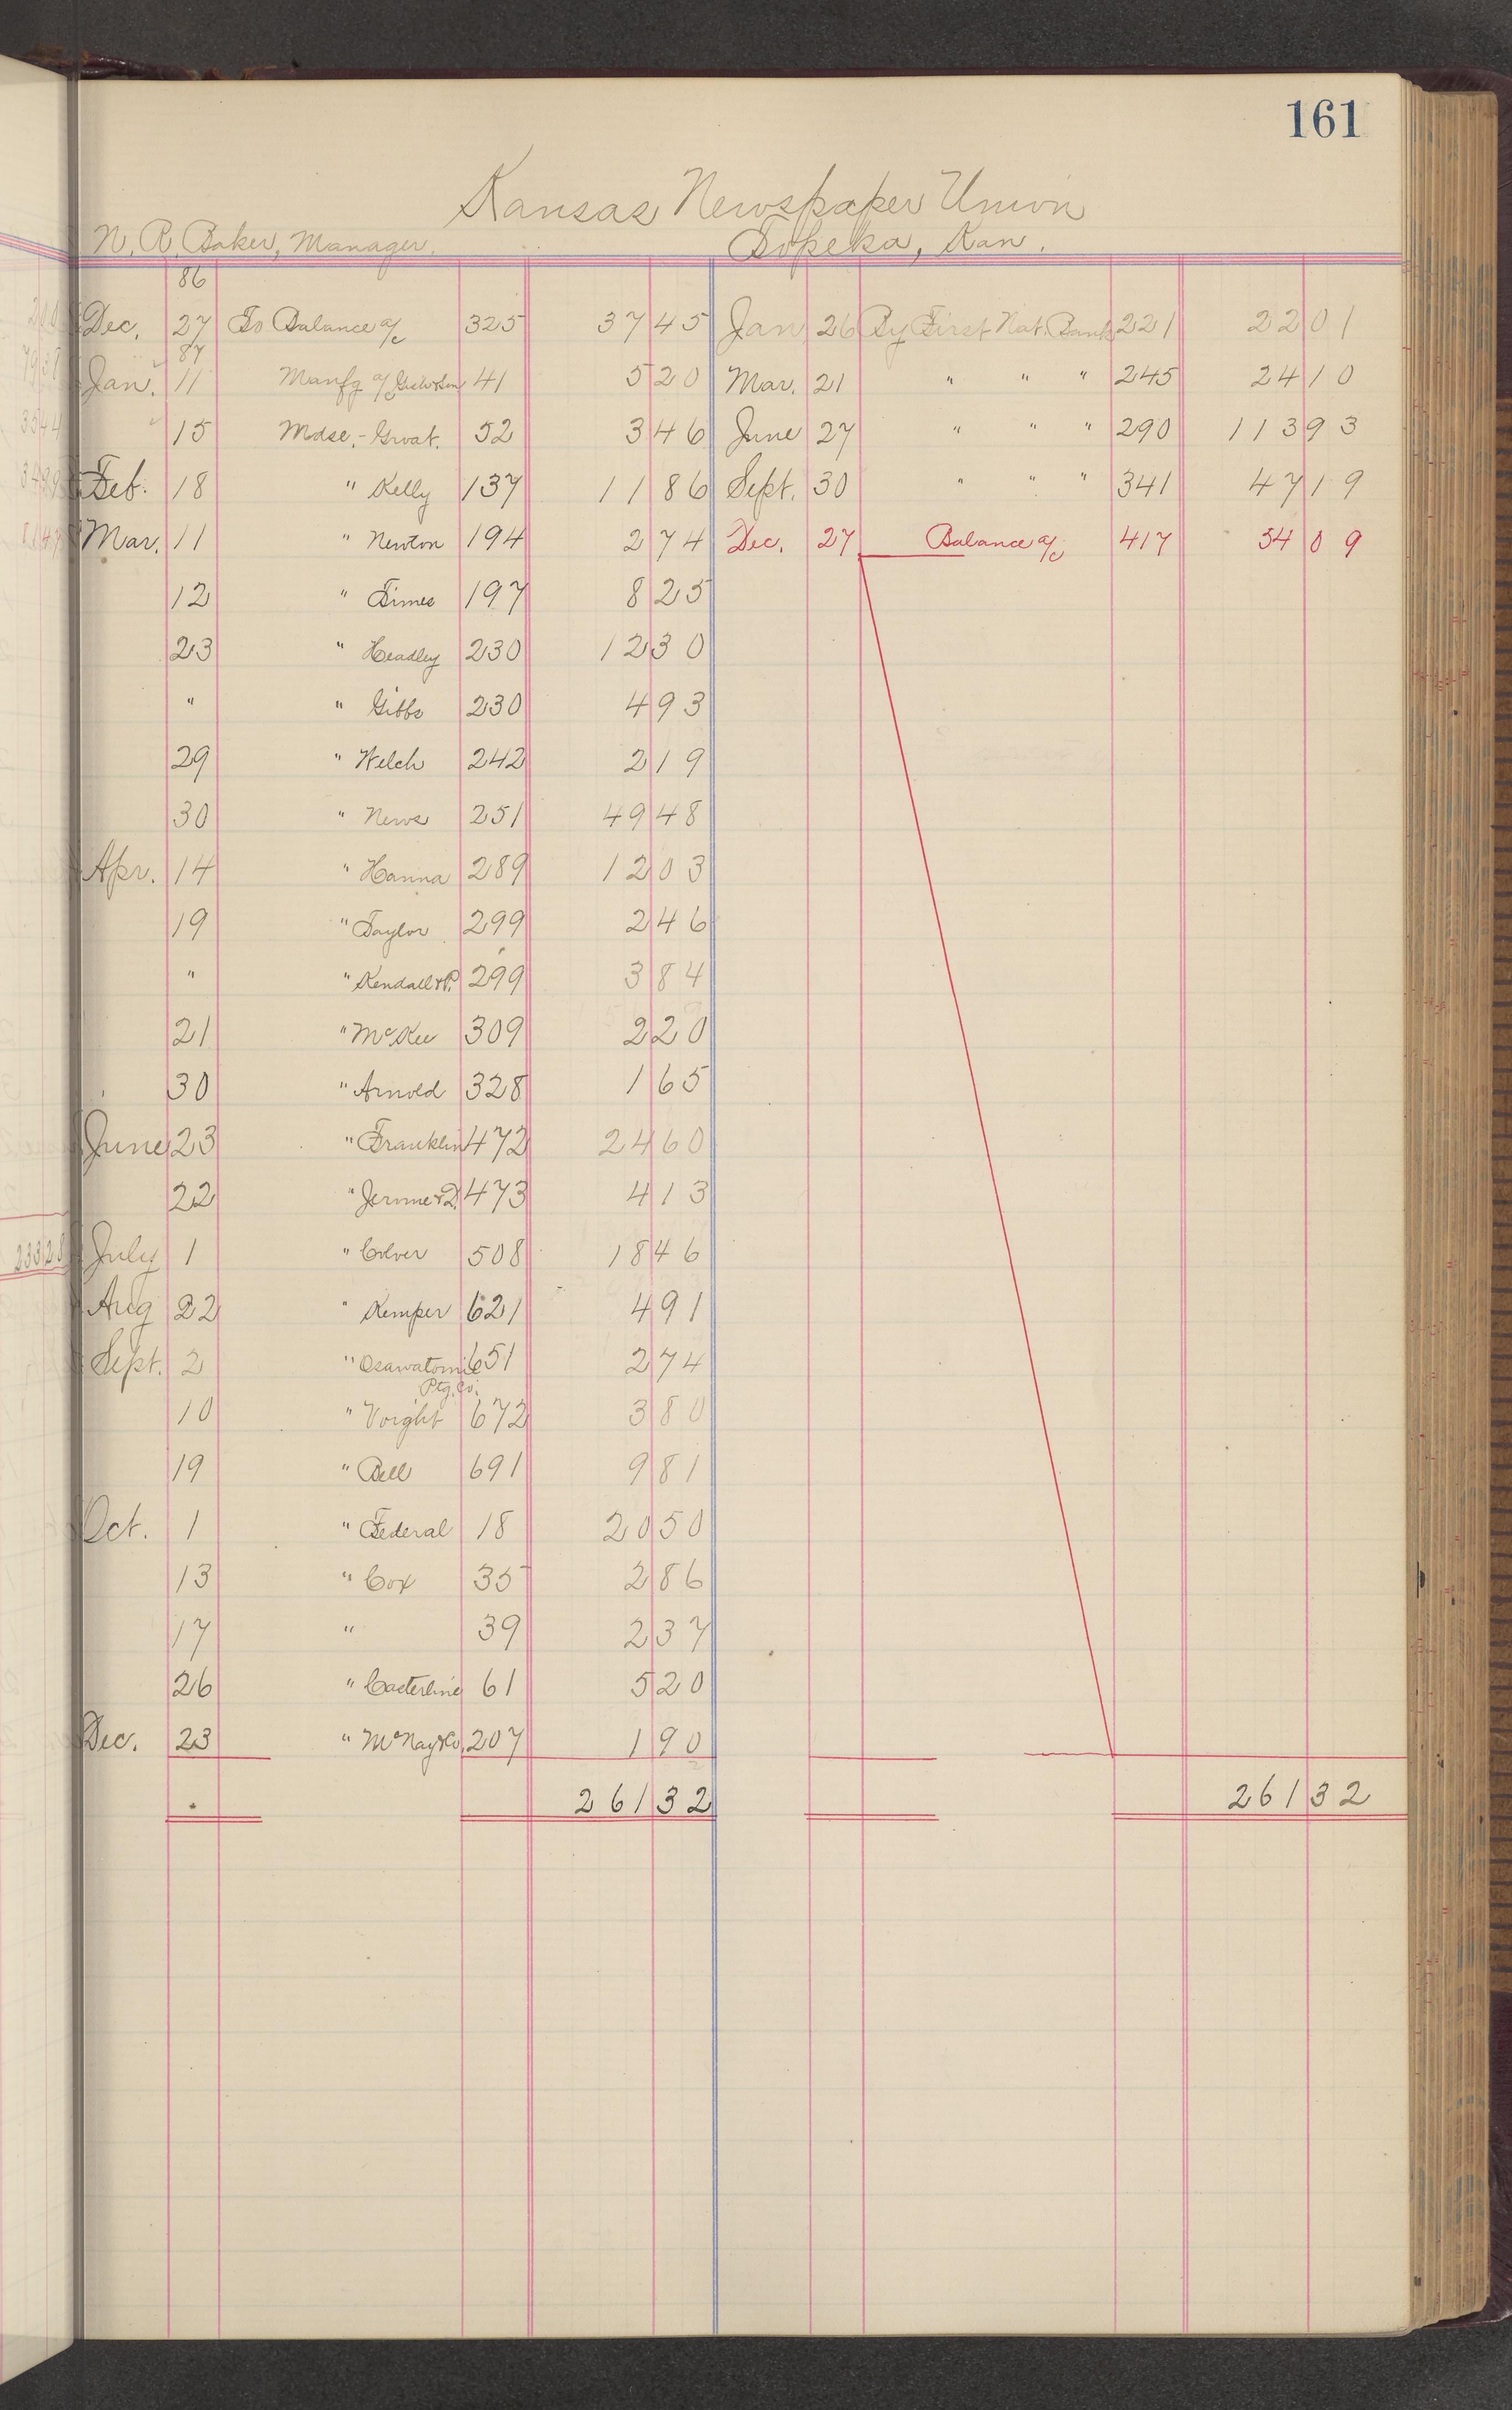 161
Kansas Newspaper Union
N. R. Baker, Manager. Topeka, Kan.
86
Dec. 27 To Balance a/c 325 37 45 Jan 26 By First Nat. Bank 221 22 01
87
Jan. 11 Manfg a/c 41 5 20 Mar. 21 " " " 245 24 10
15 Mdse, - Groat. 52 3 46 June 27 " " " 290 113 93
Feb. 18 " Kelly 137 11 86 Sept. 30 " " " 341 47 19
Mar. 11 " Newton 194 2 74 Dec. 27 Balance a/c 417 54 09
12 " Times 197 8 25
23 " Headley 230 12 30
" " Gibbs 230 4 93
29 " Welch 242 2 19
30 " News 251 49 48
Apr. 14 " Hanna 289 12 03
19 " Taylor 299 2 46
" " Kendall & P. 299 3 84
21 " McKee 309 2 20
30 " Arnold 328 1 65
June 23 " Franklin 472 24 60
22 " Jerome & D. 473 4 13
July 1 " Colver 508 18 46
Aug 22 " Kemper 621 4 91
Sept. 2 " Osawatomie 651 2 74
Ptg. Co.
10 " Voight 672 3 80
19 " Bell 691 9 81
Oct. 1 " Federal 18 20 50
13 " Cox 35 2 86
17 " 39 2 37
26 " Casterline 61 5 20
Dec. 23 " McNay & Co. 207 1 90
261 32 261 32